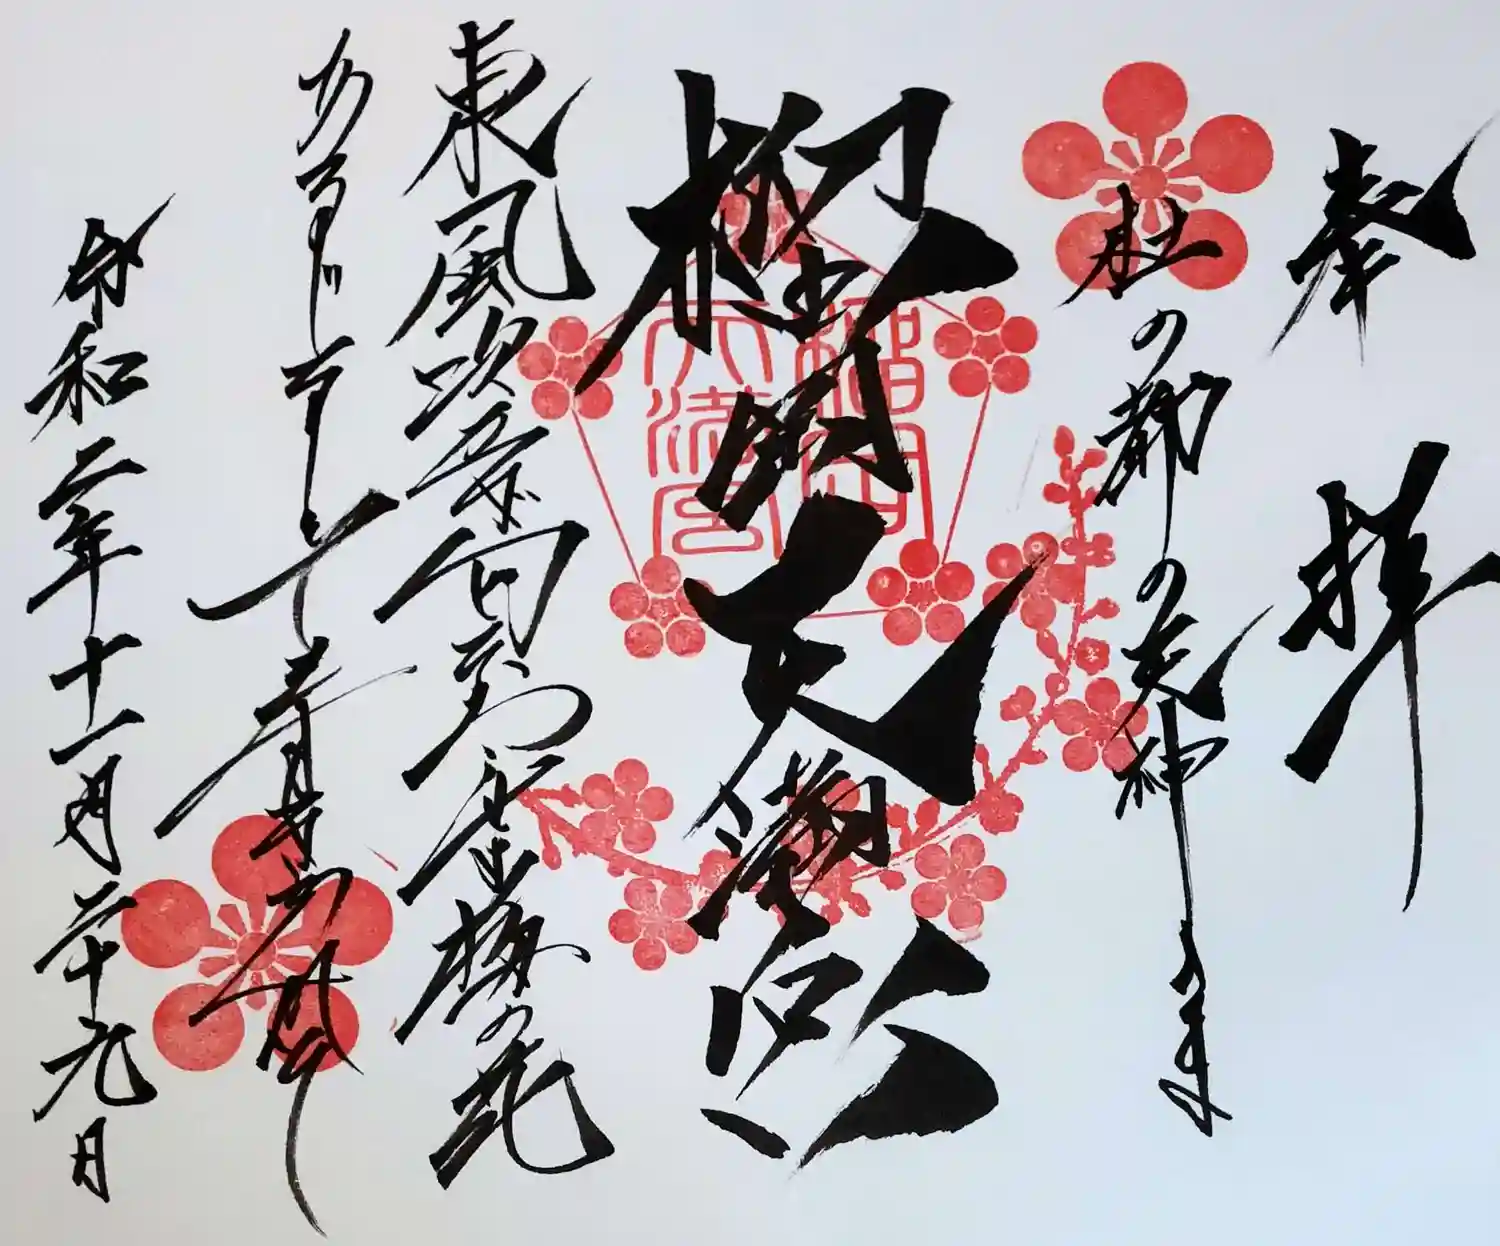 奉拝
杜の都の天神さま
榴岡天満宮
榴岡
天満宮
東風吹かば匂ひ梅の花
あるじなしとて春
令和二年十一月二十九日